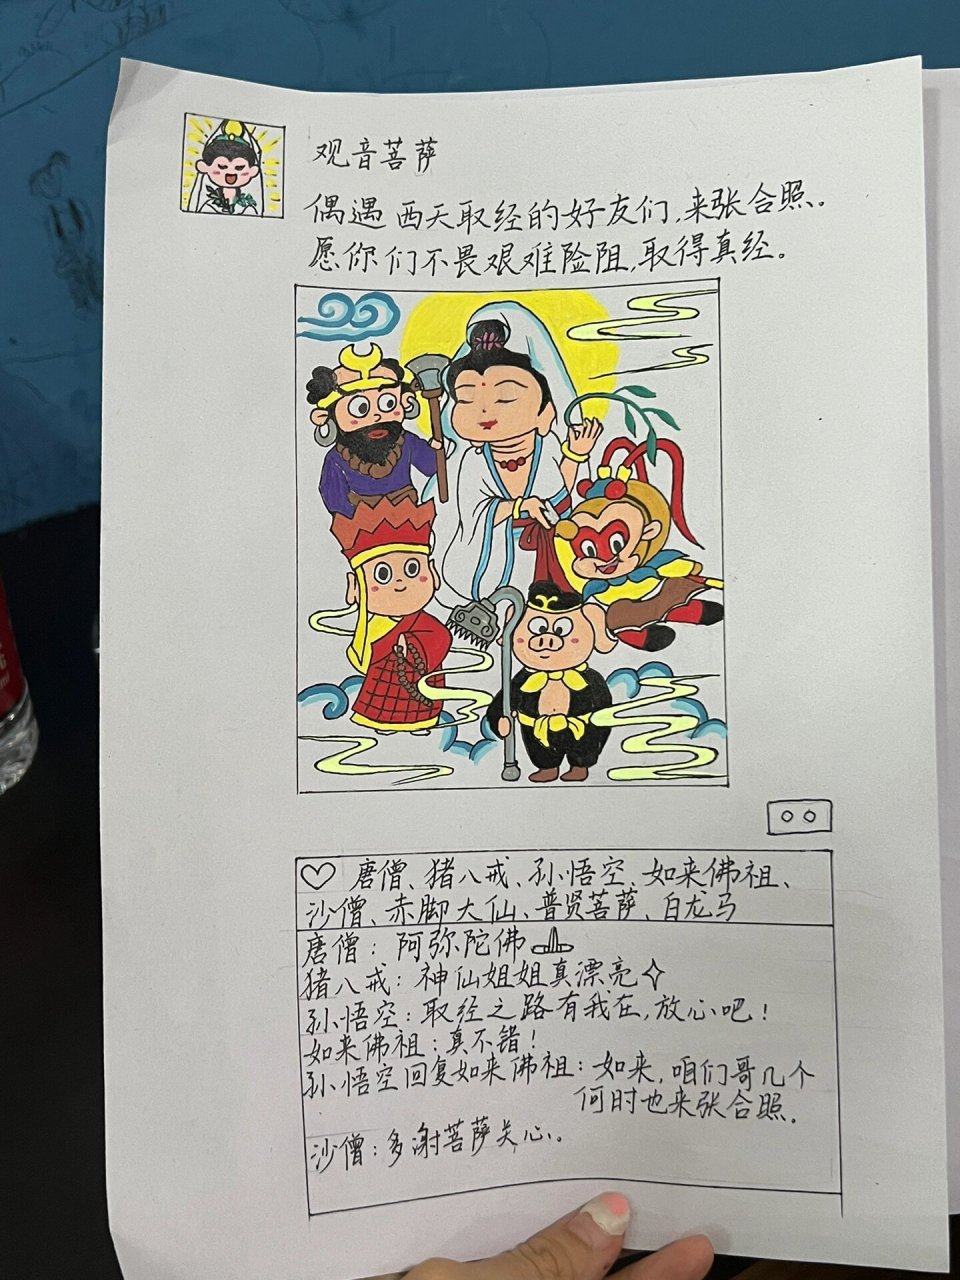 观音菩萨
偶遇西天取经的好友们,来张合照。
愿你们不畏艰难险阻,取得真经。
唐僧、猪八戒、孙悟空、如来佛祖、
沙僧、赤脚大仙、普贤菩萨、白龙马
唐僧：阿弥陀佛
猪八戒：神仙姐姐真漂亮
孙悟空：取经之路有我在,放心吧!
如来佛祖：真不错!
孙悟空回复如来佛祖：如来,咱们哥几个
何时也来张合照。
沙僧：多谢菩萨关心。